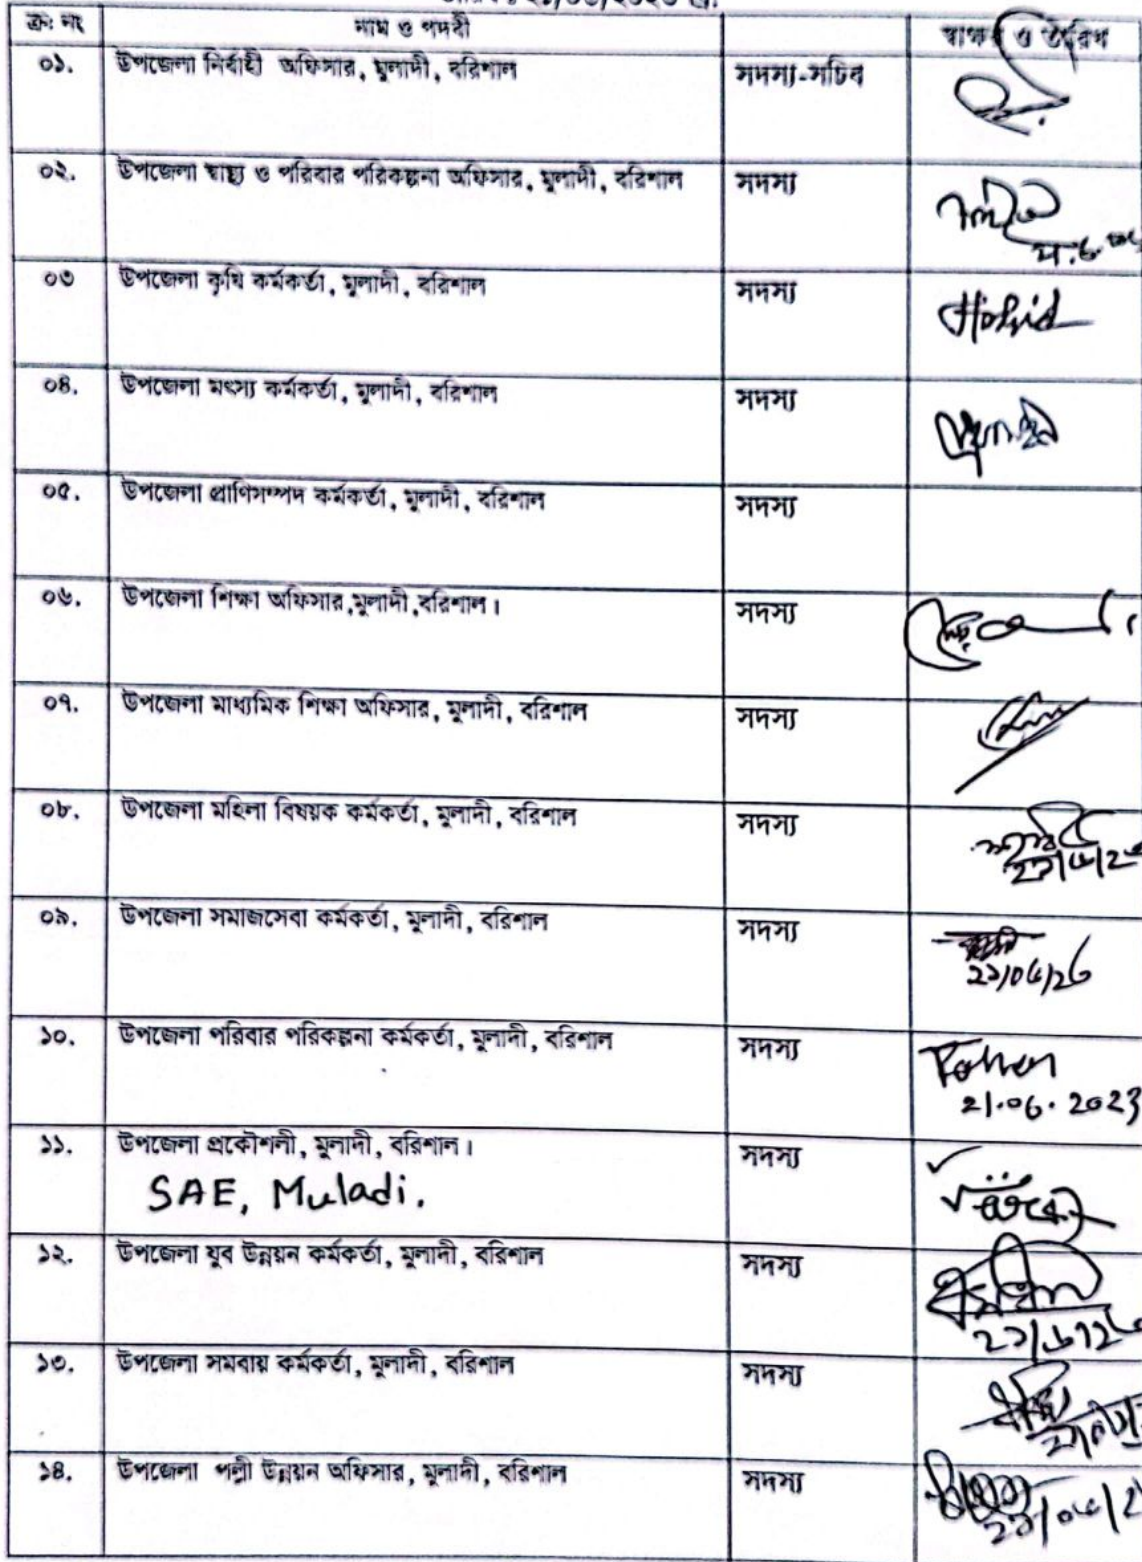 ক্রঃ নং নাম ও পদবী স্বাক্ষর ও তারিখ
০১. উপজেলা নির্বাহী অফিসার, মুলাদী, বরিশাল সদস্য-সচিব
০২. উপজেলা স্বাস্থ্য ও পরিবার পরিকল্পনা অফিসার, মুলাদী, বরিশাল সদস্য
০৩ উপজেলা কৃষি কর্মকর্তা, মুলাদী, বরিশাল সদস্য
০৪. উপজেলা মৎস্য কর্মকর্তা, মুলাদী, বরিশাল সদস্য
০৫. উপজেলা প্রাণিসম্পদ কর্মকর্তা, মুলাদী, বরিশাল সদস্য
০৬. উপজেলা শিক্ষা অফিসার,মুলাদী,বরিশাল। সদস্য
০৭. উপজেলা মাধ্যমিক শিক্ষা অফিসার, মুলাদী, বরিশাল সদস্য
০৮. উপজেলা মহিলা বিষয়ক কর্মকর্তা, মুলাদী, বরিশাল সদস্য
০৯. উপজেলা সমাজসেবা কর্মকর্তা, মুলাদী, বরিশাল সদস্য
১০. উপজেলা পরিবার পরিকল্পনা কর্মকর্তা, মুলাদী, বরিশাল সদস্য
21.06.2023
১১. উপজেলা প্রকৌশলী, মুলাদী, বরিশাল। সদস্য
SAE, Muladi.
১২. উপজেলা যুব উন্নয়ন কর্মকর্তা, মুলাদী, বরিশাল সদস্য
১৩. উপজেলা সমবায় কর্মকর্তা, মুলাদী, বরিশাল সদস্য
১৪. উপজেলা পল্লী উন্নয়ন অফিসার, মুলাদী, বরিশাল সদস্য